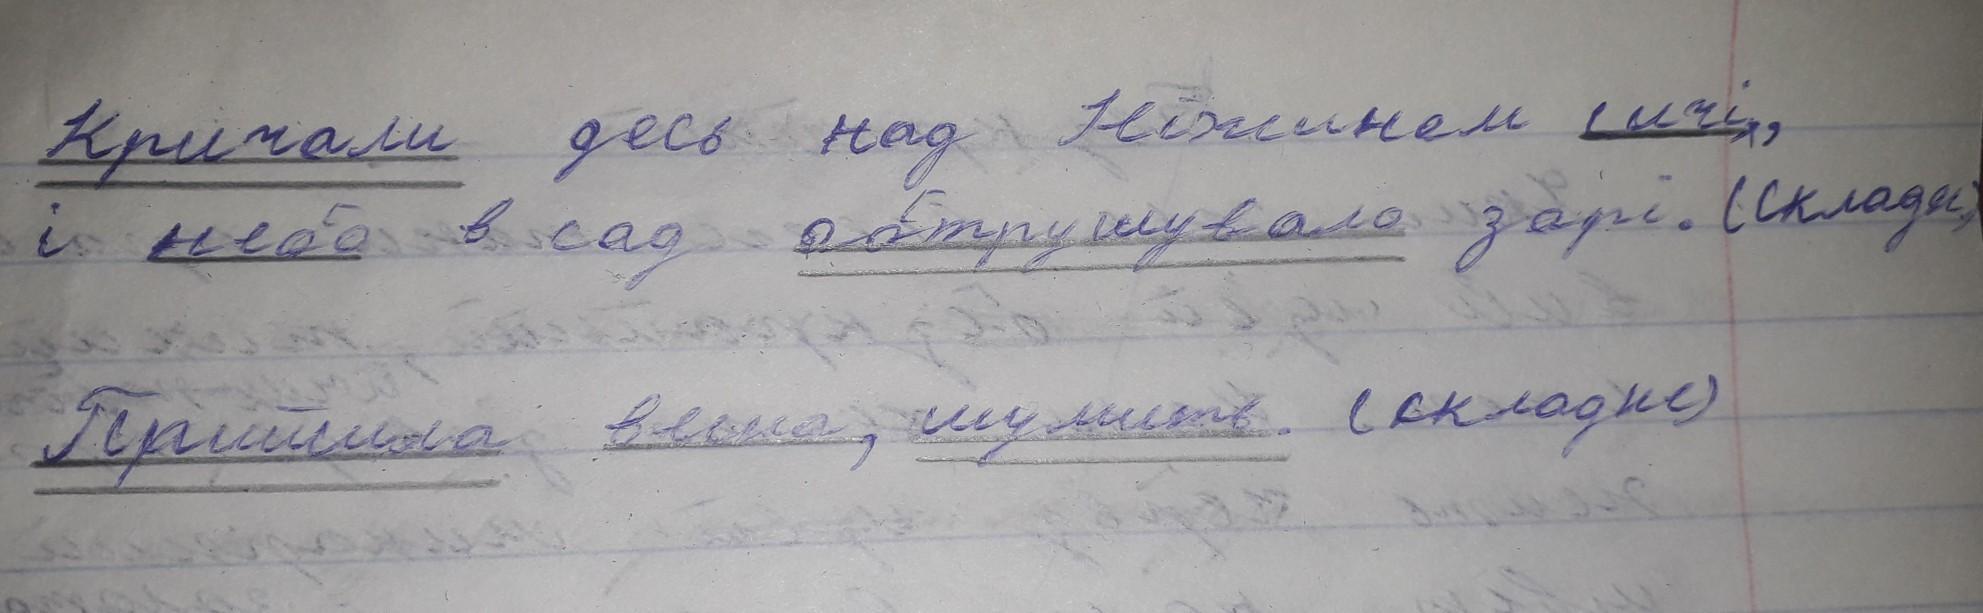 Кричали десь над Ніжином сичі,
і небо в сад обтрушувало зорі. (Складн)
Прийшла весна, шумить. (складне)